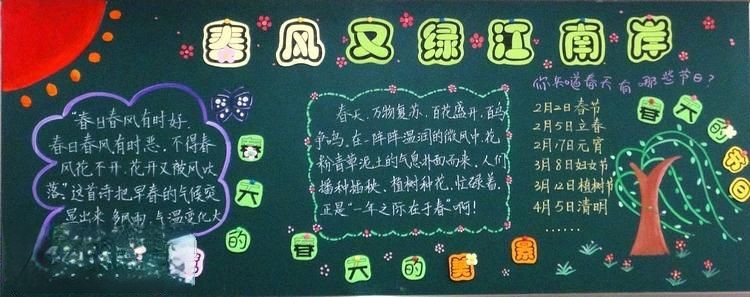 春风又绿江南岸
"春日春风有时好,
春日春风有时恶、不得春
风花不开,花开又被风吹
落。"这首诗把早春的气候突
显出来、多风雨,气温变化大
春天的
春天,万物复苏,百花盛开,百鸟
争鸣。在一阵阵湿润的微风中,花
粉青草泥土的气息扑面而来,人们
播种插秧、植树种花,忙碌着,
正是"一年之际在于春"啊!
春天的美景
你知道春天有哪些节日?
2月2日春节
2月5日立春
2月17日元宵
3月8日妇女节
3月12日植树节
4月5日清明
......
春天的节日